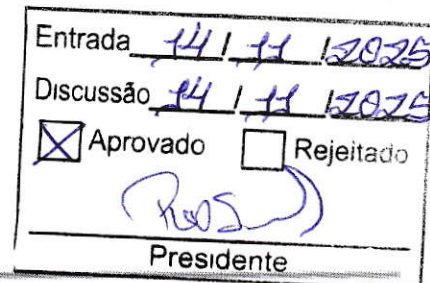 Entrada 14 / 11 / 2025
Discussão 14 / 11 / 2025
☒ Aprovado ☐ Rejeitado
Presidente